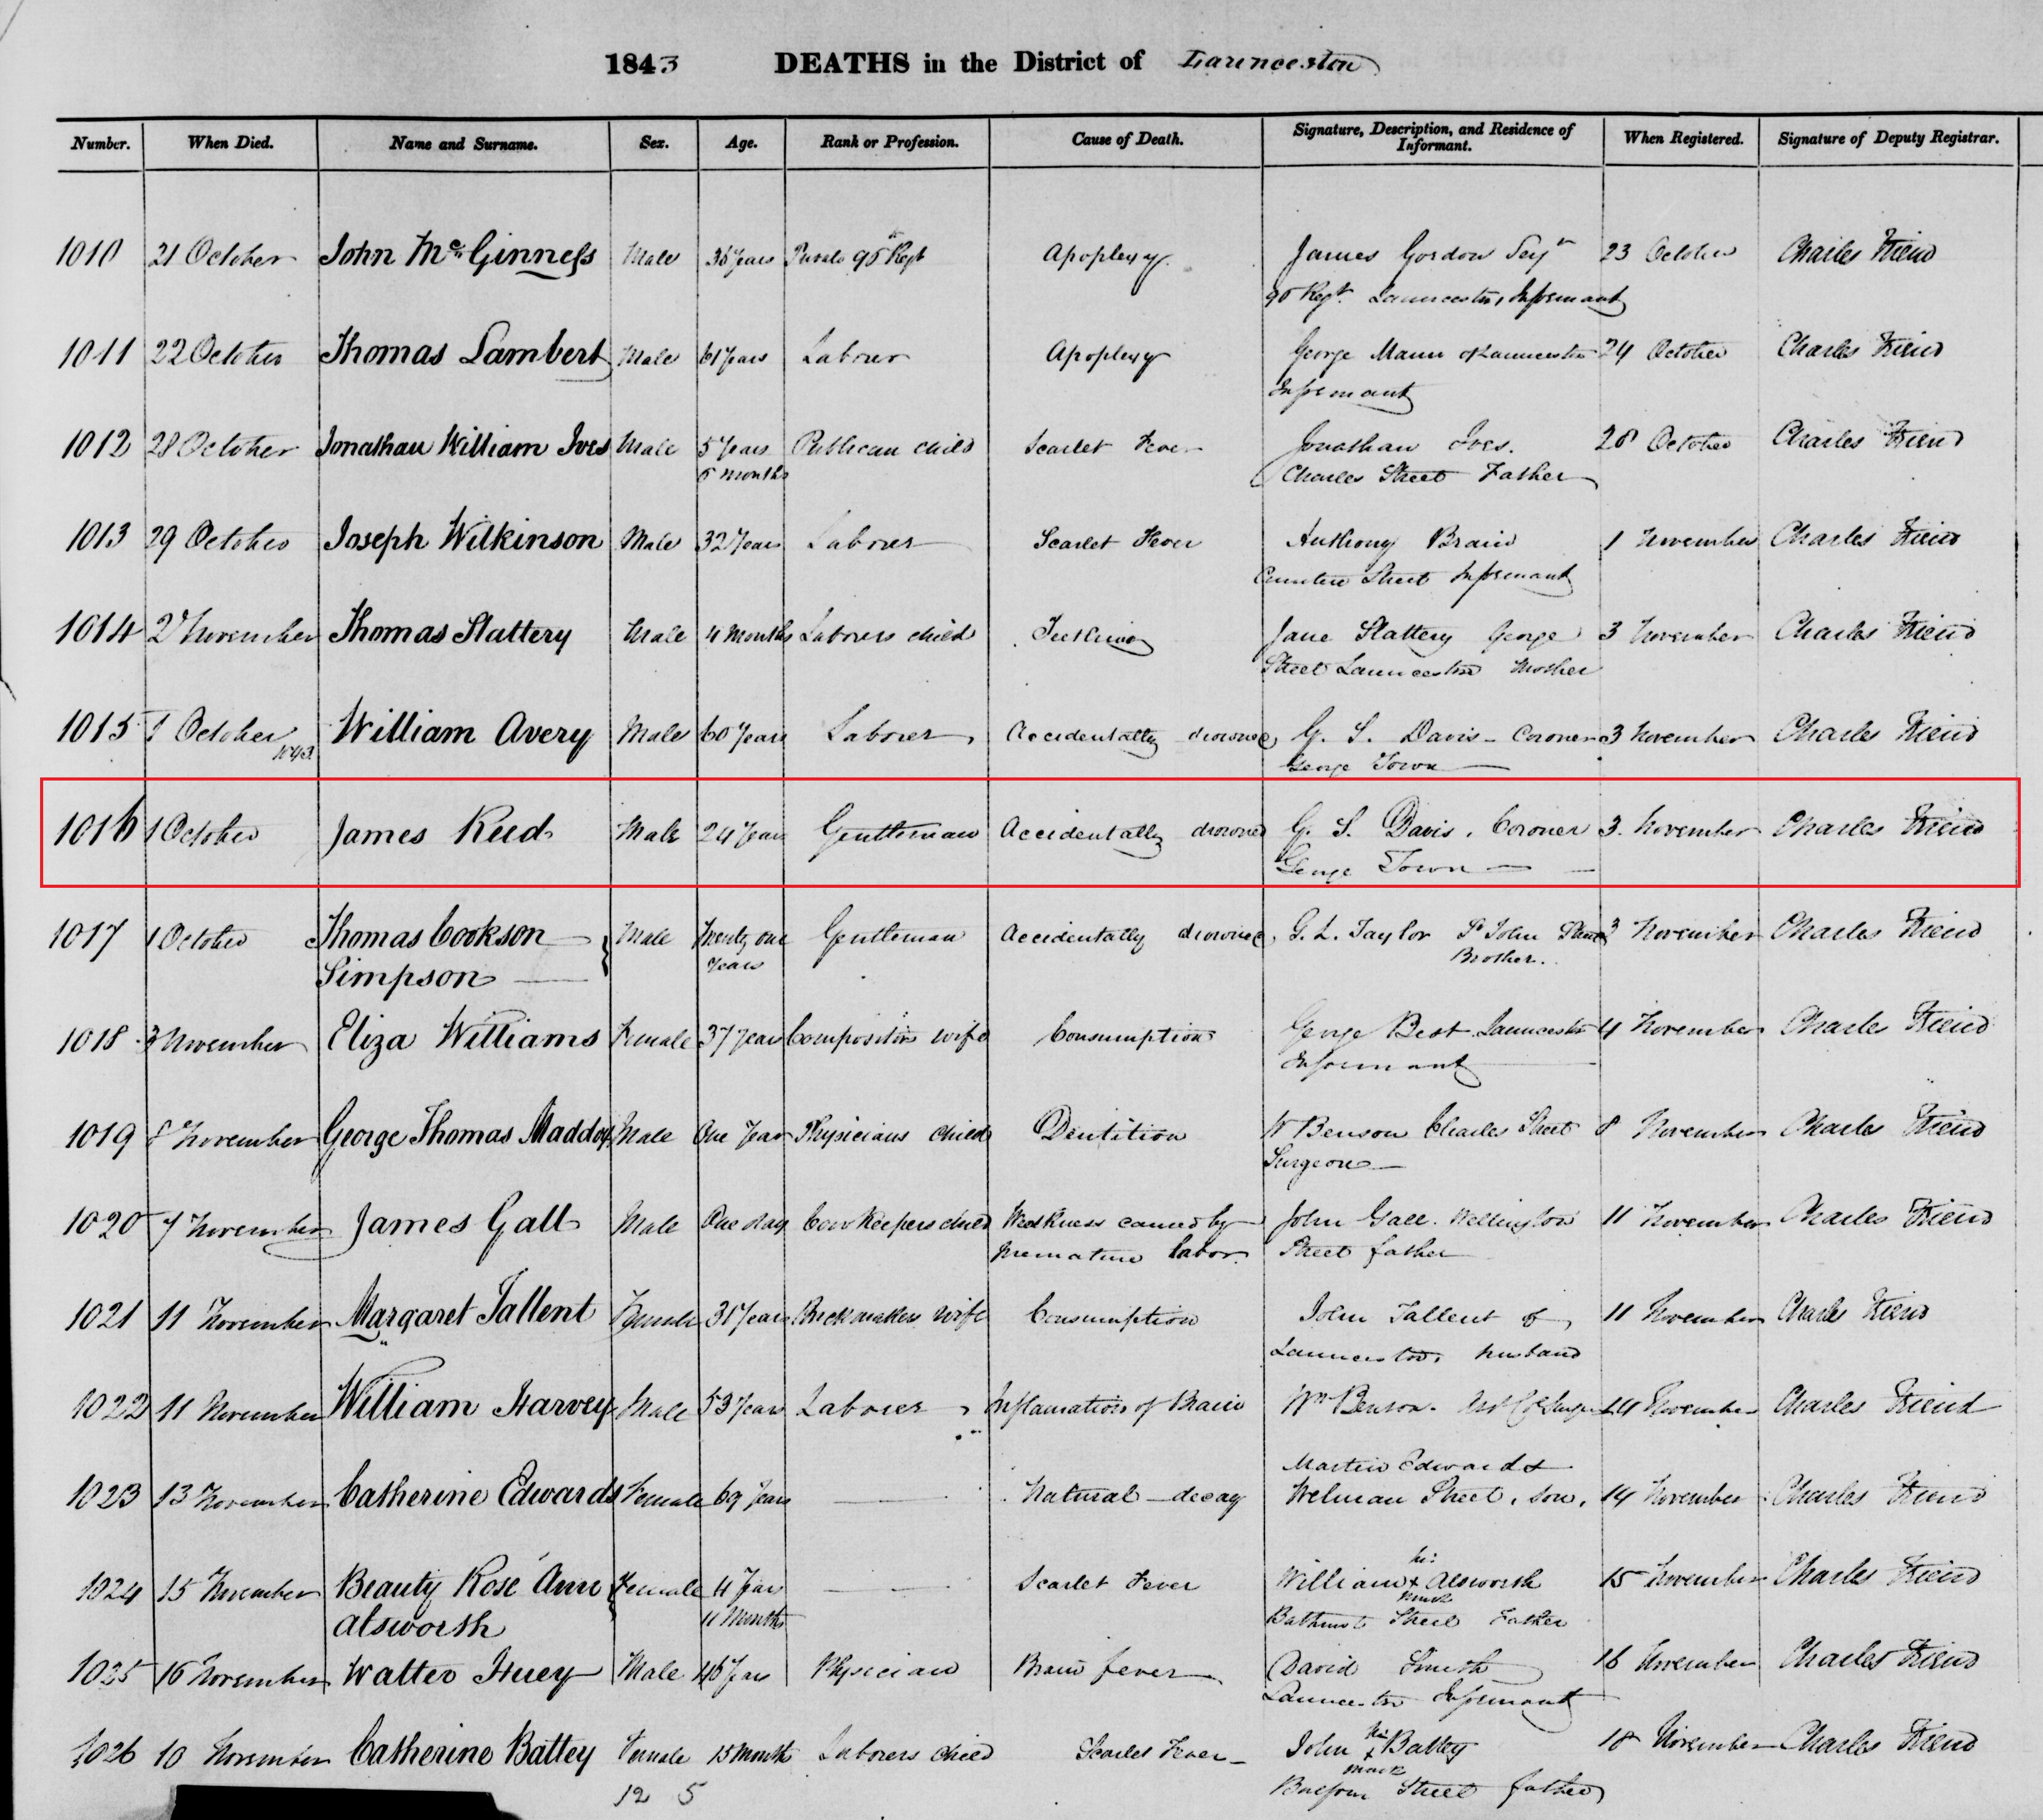 1843 DEATHS in the District of Launceston
Number. When Died. Name and Surname. Sex. Age. Rank or Profession. Cause of Death. Signature, Description, and Residence of Informant. When Registered. Signature of Deputy Registrar.
1010 21 October John McGinness Male 35 Years 96th Regt Apoplexy James Gordon 23 October Charles Friend
Regt. Launceston, Informant
1011 22 October Thomas Lambert Male 61 Years Laborer Apoplexy George Mann of Launceston 24 October Charles Friend
Informant
1012 28 October Jonathan William Ives Male 5 Years Publican child Scarlet Fever Jonathan Ives. 28 October Charles Friend
6 months Charles Street Father
1013 29 October Joseph Wilkinson Male 32 Years Laborer Scarlet Fever Anthony 1 November Charles Friend
Street Informant
1014 2 November Thomas Slattery Male 4 Months Laborers child Teething Jane Slattery George 3 November Charles Friend
Street Launceston Mother
1015 1 October William Avery Male 60 Years Laborer Accidentally drowned G. S. Davis Coroner 3 November Charles Friend
1843 George Town
1016 1 October James Reid Male 24 Years Gentleman Accidentally drowned G. S. Davis, Coroner 3. November Charles Friend
George Town
1017 1 October Thomas Cookson Male Twenty one Gentleman Accidentally drowned G. L. Taylor St John Street 3 November Charles Friend
Simpson Years Brother.
1018 3 November Eliza Williams Female 37 Years Compositors wife Consumption George Best Launceston 4 November Charles Friend
Informant
1019 8 November George Thomas Maddox Male One Year Physicians child Dentition W Benson Charles Street 8 November Charles Friend
Surgeon
1020 7 November James Gall Male One day Cowkeepers child Weakness caused by John Gall. Wellington 11 November Charles Friend
premature labor. Street father
1021 11 November Margaret Tallent Female 31 Years Brickmakers wife Consumption John Tallent of 11 November Charles Friend
Launceston, husband
1022 11 November William Harvey Male 53 Years Laborer Inflamation of Brain Wm Benson. 14 November Charles Friend
Martin Edwards
1023 13 November Catherine Edwards Female 69 Years Natural decay Welman Street, son, 14 November Charles Friend
his
1024 15 November Beauty Rose Ann Female 4 Year Scarlet Fever William x Alsworth 15 November Charles Friend
mark
Alsworth 11 Months Bathurst Street Father
1025 16 November Walter Huey Male 46 Years Physician Brain fever David Smith 16 November Charles Friend
Launceston Informant
his
1026 10 November Catherine Battey Female 15 months Laborers child Scarlet Fever John x Battey 18 November Charles Friend
mark
Balfour Street father
12 5